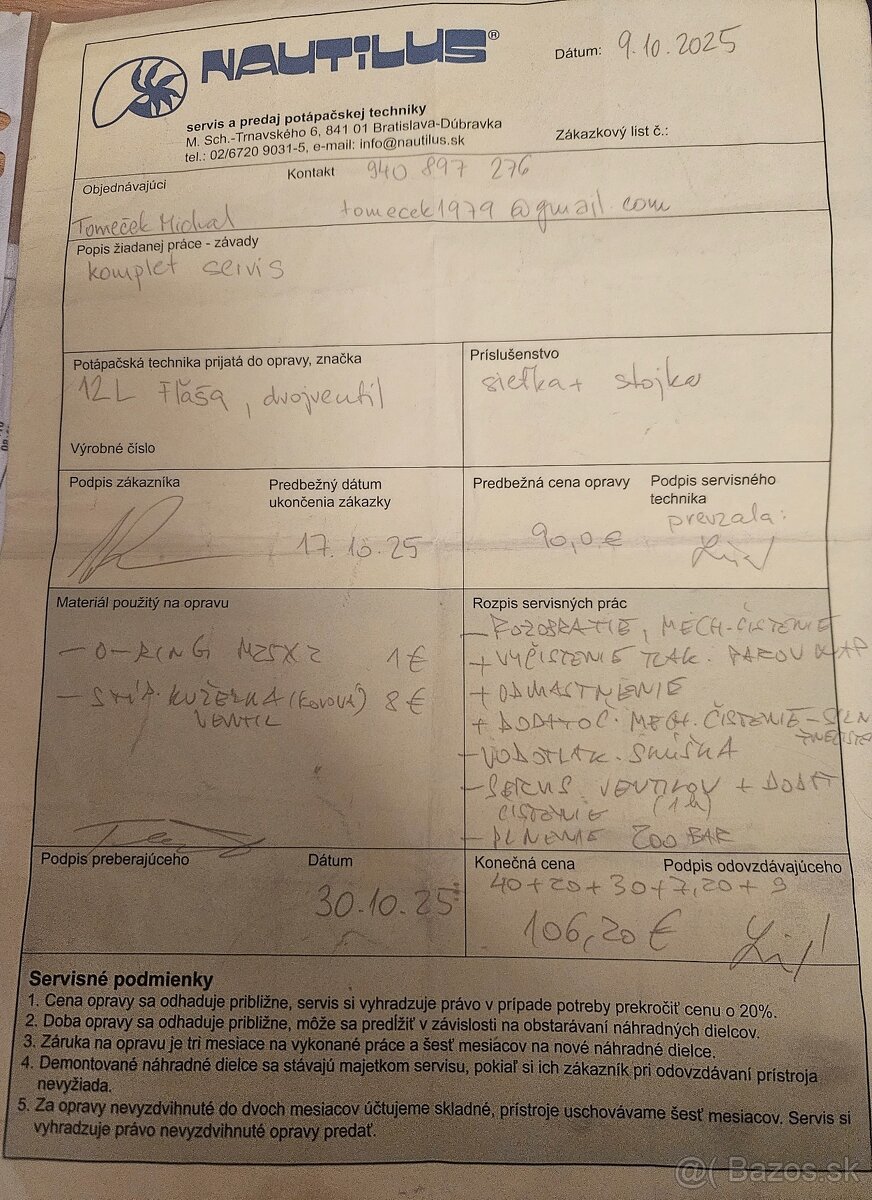 NAUTILUS®
Dátum: 9.10.2025
servis a predaj potápačskej techniky
M. Sch.-Trnavského 6, 841 01 Bratislava-Dúbravka
tel.: 02/6720 9031-5, e-mail: info@nautilus.sk
Zákazkový list č.:
Objednávajúci
Kontakt 940 897 276
Tomeček Michal tomecek1979@gmail.com
Popis žiadanej práce - závady
komplet servis
Potápačská technika prijatá do opravy, značka
12L Fľaša, dvojventil
Výrobné číslo
Príslušenstvo
sieťka + stojka
Podpis zákazníka
Predbežný dátum
ukončenia zákazky
17.10.25
Predbežná cena opravy
90,0 €
Podpis servisného
technika
prevzala:
Materiál použitý na opravu
- O-RING M25X2 1€
- STÚP. KUŽEĽKA (KOVOVÁ) 8€
VENTIL
Rozpis servisných prác
- ROZOBRATIE, MECH. ČISTENIE
+ VYČISTENIE TLAK. PAROU
+ ODMASTNENIE
+ DODATOČ. MECH. ČISTENIE - SILN
- VODOTLAK. SKÚŠKA
- SERVIS VENTILOV + DODAT
ČISTENIE (1h)
- PLNENIE 200 BAR
Podpis preberajúceho
Dátum
30.10.25
Konečná cena
40+20+30+7,20+9
106,20 €
Podpis odovzdávajúceho
Servisné podmienky
1. Cena opravy sa odhaduje približne, servis si vyhradzuje právo v prípade potreby prekročiť cenu o 20%.
2. Doba opravy sa odhaduje približne, môže sa predĺžiť v závislosti na obstarávaní náhradných dielcov.
3. Záruka na opravu je tri mesiace na vykonané práce a šesť mesiacov na nové náhradné dielce.
4. Demontované náhradné dielce sa stávajú majetkom servisu, pokiaľ si ich zákazník pri odovzdávaní prístroja
nevyžiada.
5. Za opravy nevyzdvihnuté do dvoch mesiacov účtujeme skladné, prístroje uschovávame šesť mesiacov. Servis si
vyhradzuje právo nevyzdvihnuté opravy predať.
@( Bazos.sk